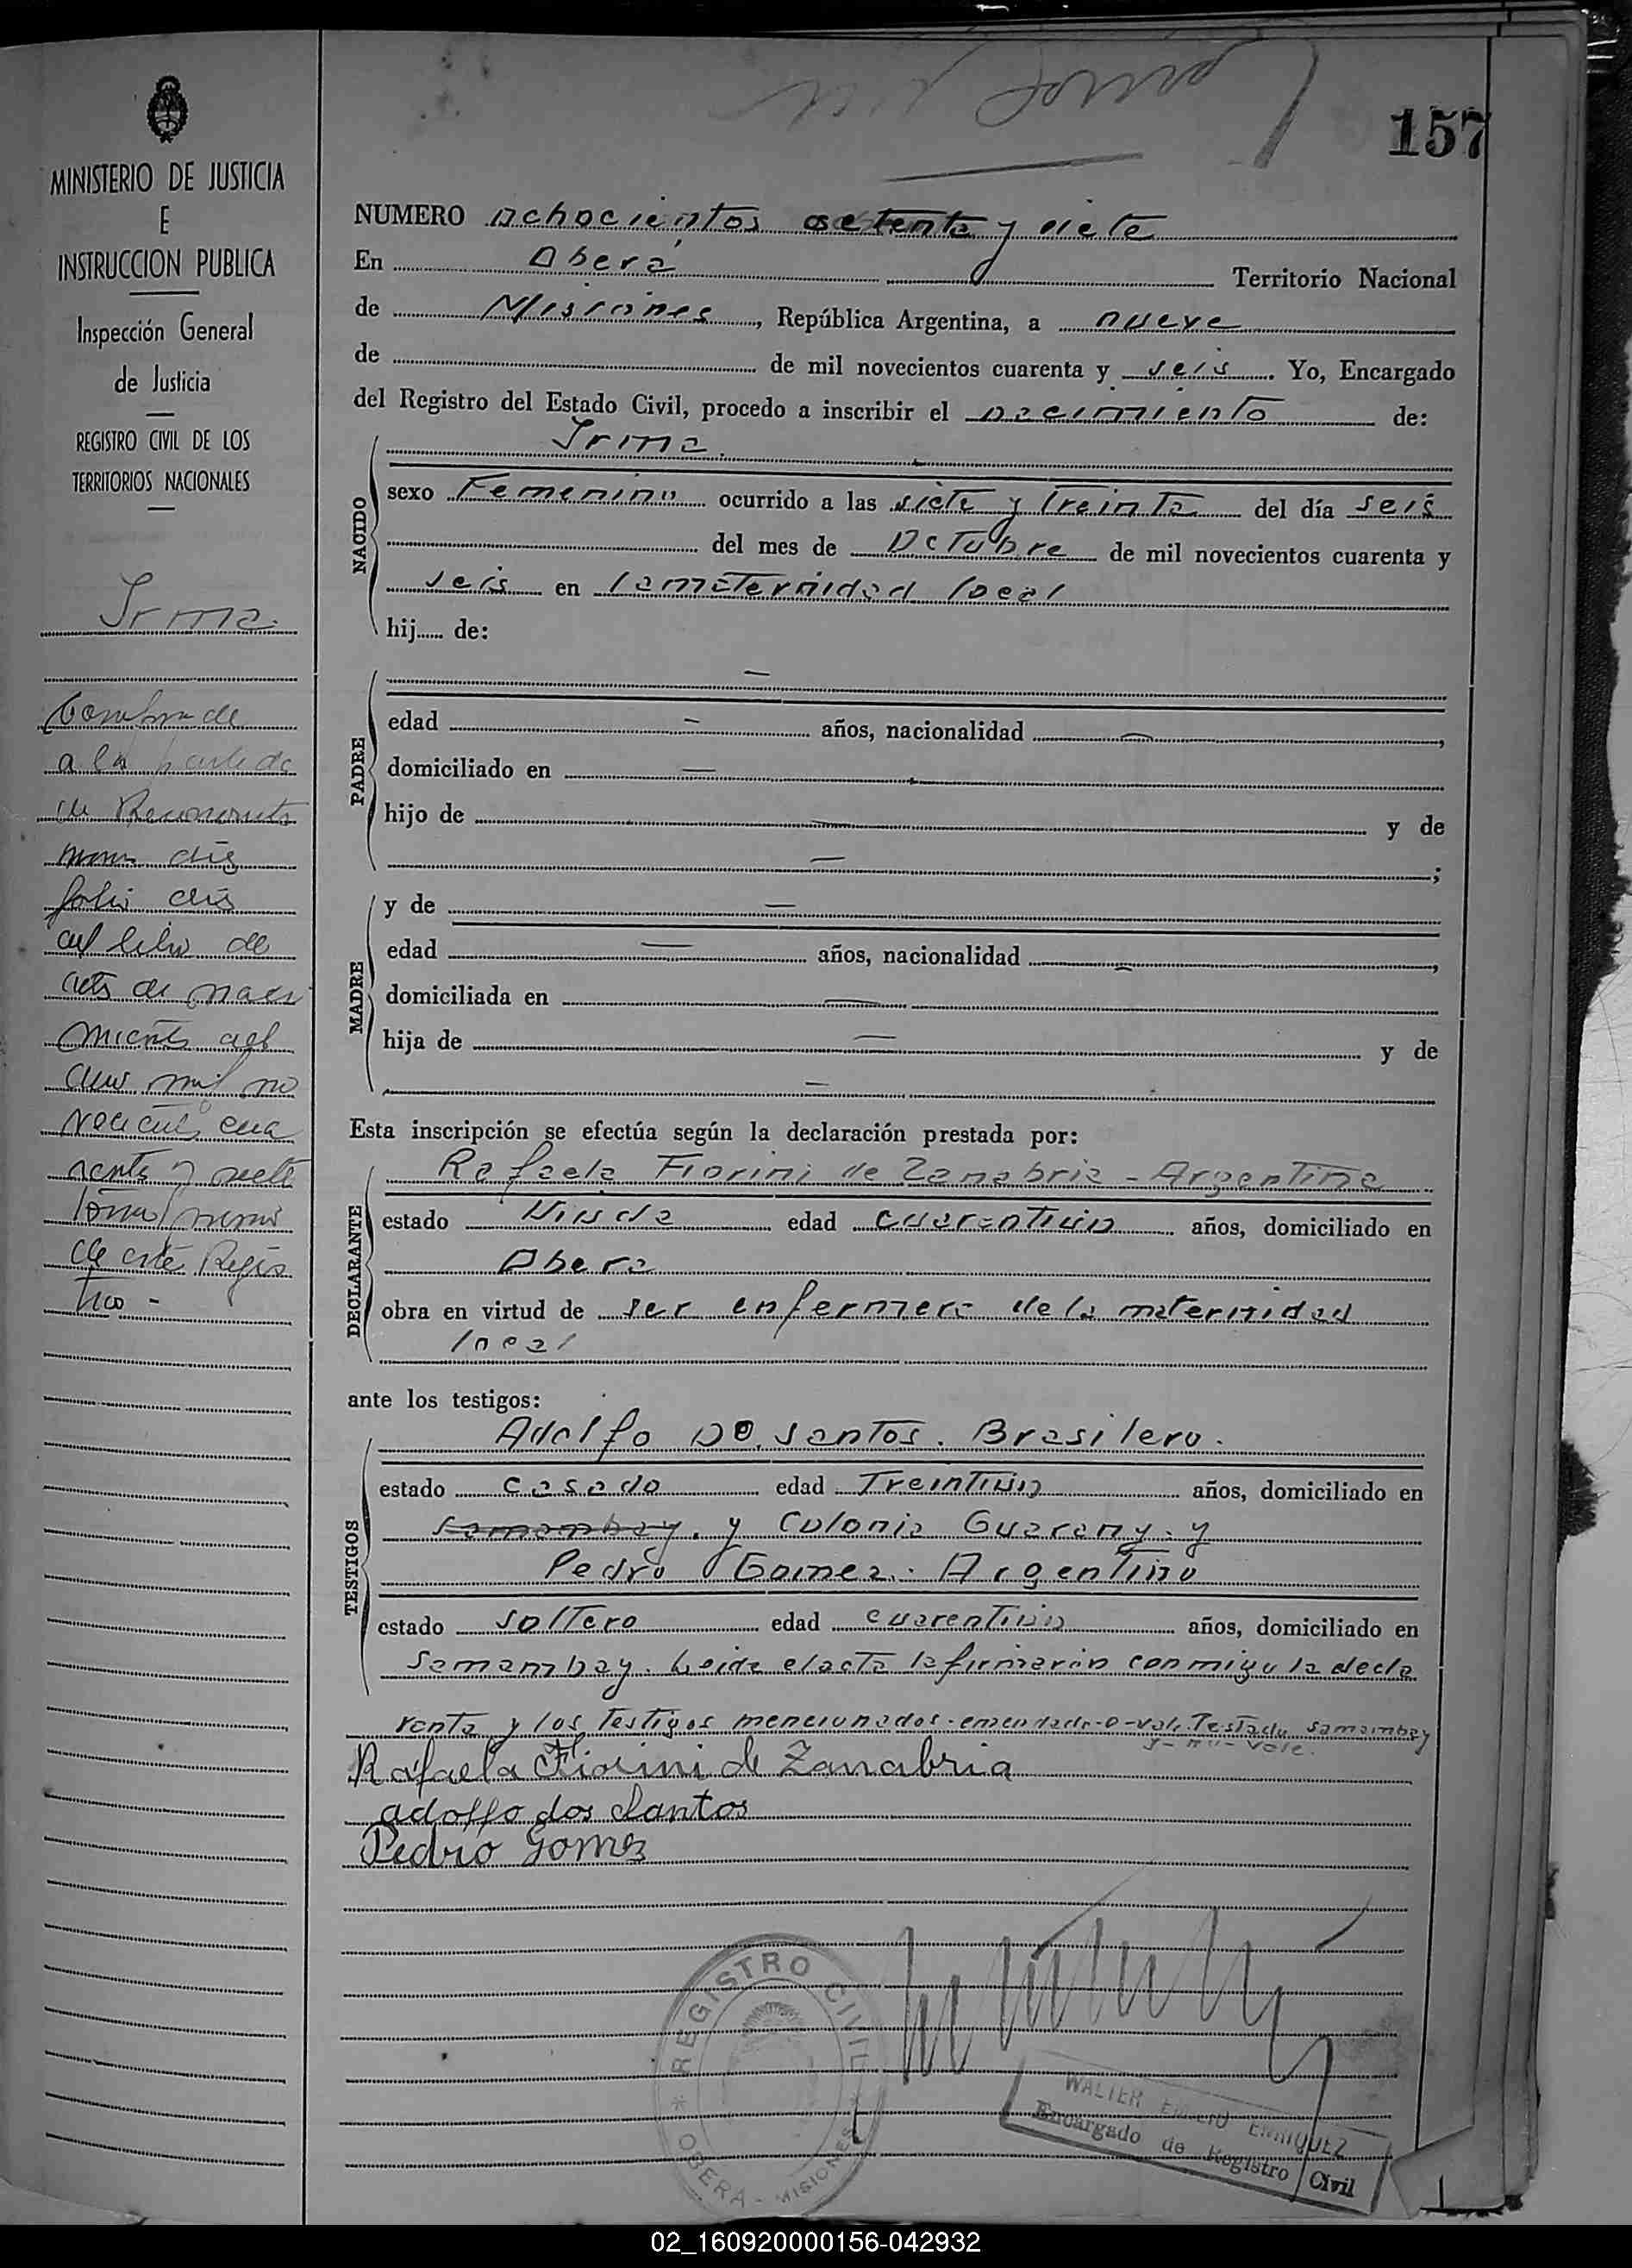 157
MINISTERIO DE JUSTICIA
E
INSTRUCCION PUBLICA
Inspección General
de Justicia
REGISTRO CIVIL DE LOS
TERRITORIOS NACIONALES
Irma
a la
de
folio
del libro de
acta de naci
miento del
mil no
vecientos cua
renta y siete
tomo primero
de este Regis
tro -
NUMERO ochocientos setenta y siete
En Oberá Territorio Nacional
de Misiones, República Argentina, a nueve
de de mil novecientos cuarenta y seis. Yo, Encargado
del Registro del Estado Civil, procedo a inscribir el nacimiento de:
NACIDO
Irma.
sexo Femenino ocurrido a las siete y treinta del día seis
del mes de Octubre de mil novecientos cuarenta y
seis en la maternidad local
hij...... de:
PADRE
—
edad — años, nacionalidad —,
domiciliado en —
hijo de — y de
— ;
MADRE
y de —
edad — años, nacionalidad —,
domiciliada en —
hija de — y de
—
Esta inscripción se efectúa según la declaración prestada por:
DECLARANTE
Rafaela Fiorini de Zanabria - Argentina
estado Viuda edad cuarentiun años, domiciliado en
Obera
obra en virtud de ser enfermera de la maternidad
local
ante los testigos:
TESTIGOS
Adolfo Do. Santos. Brasilero.
estado casado edad Treintiun años, domiciliado en
Samambay. y Colonia Guarany. y
Pedro Gomez. Argentino
estado soltero edad cuarentiun años, domiciliado en
Samambay. Leida el acta la firmarón conmigo la decla
ranta y los Testigos mencionados. emendado-o-vale. Testado Samambay
y-no-vale.
Rafaela Fiorini de Zanabria
adolfo dos Santos
Pedro Gomez
REGISTRO CIVIL
OBERA - MISIONES
WALTER ENRIQUEZ
Encargado de Registro Civil
02_160920000156-042932